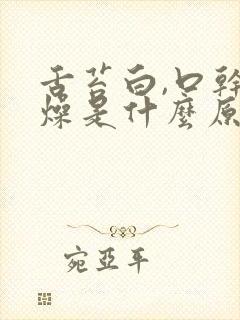 舌苔白,口幹
燥是什麼原
宛亞平